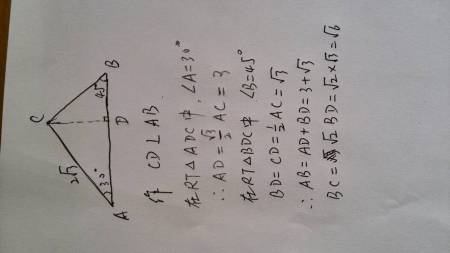 C
B
45°
D
2√3
30°
A
作 CD⊥AB.
在RT△ADC中, ∠A=30°
∴ AD=√3/2 AC=3
在RT△BDC中 ∠B=45°
BD=CD=1/2 AC=√3
∴ AB=AD+BD=3+√3
BC=√2 BD=√2×√3=√6